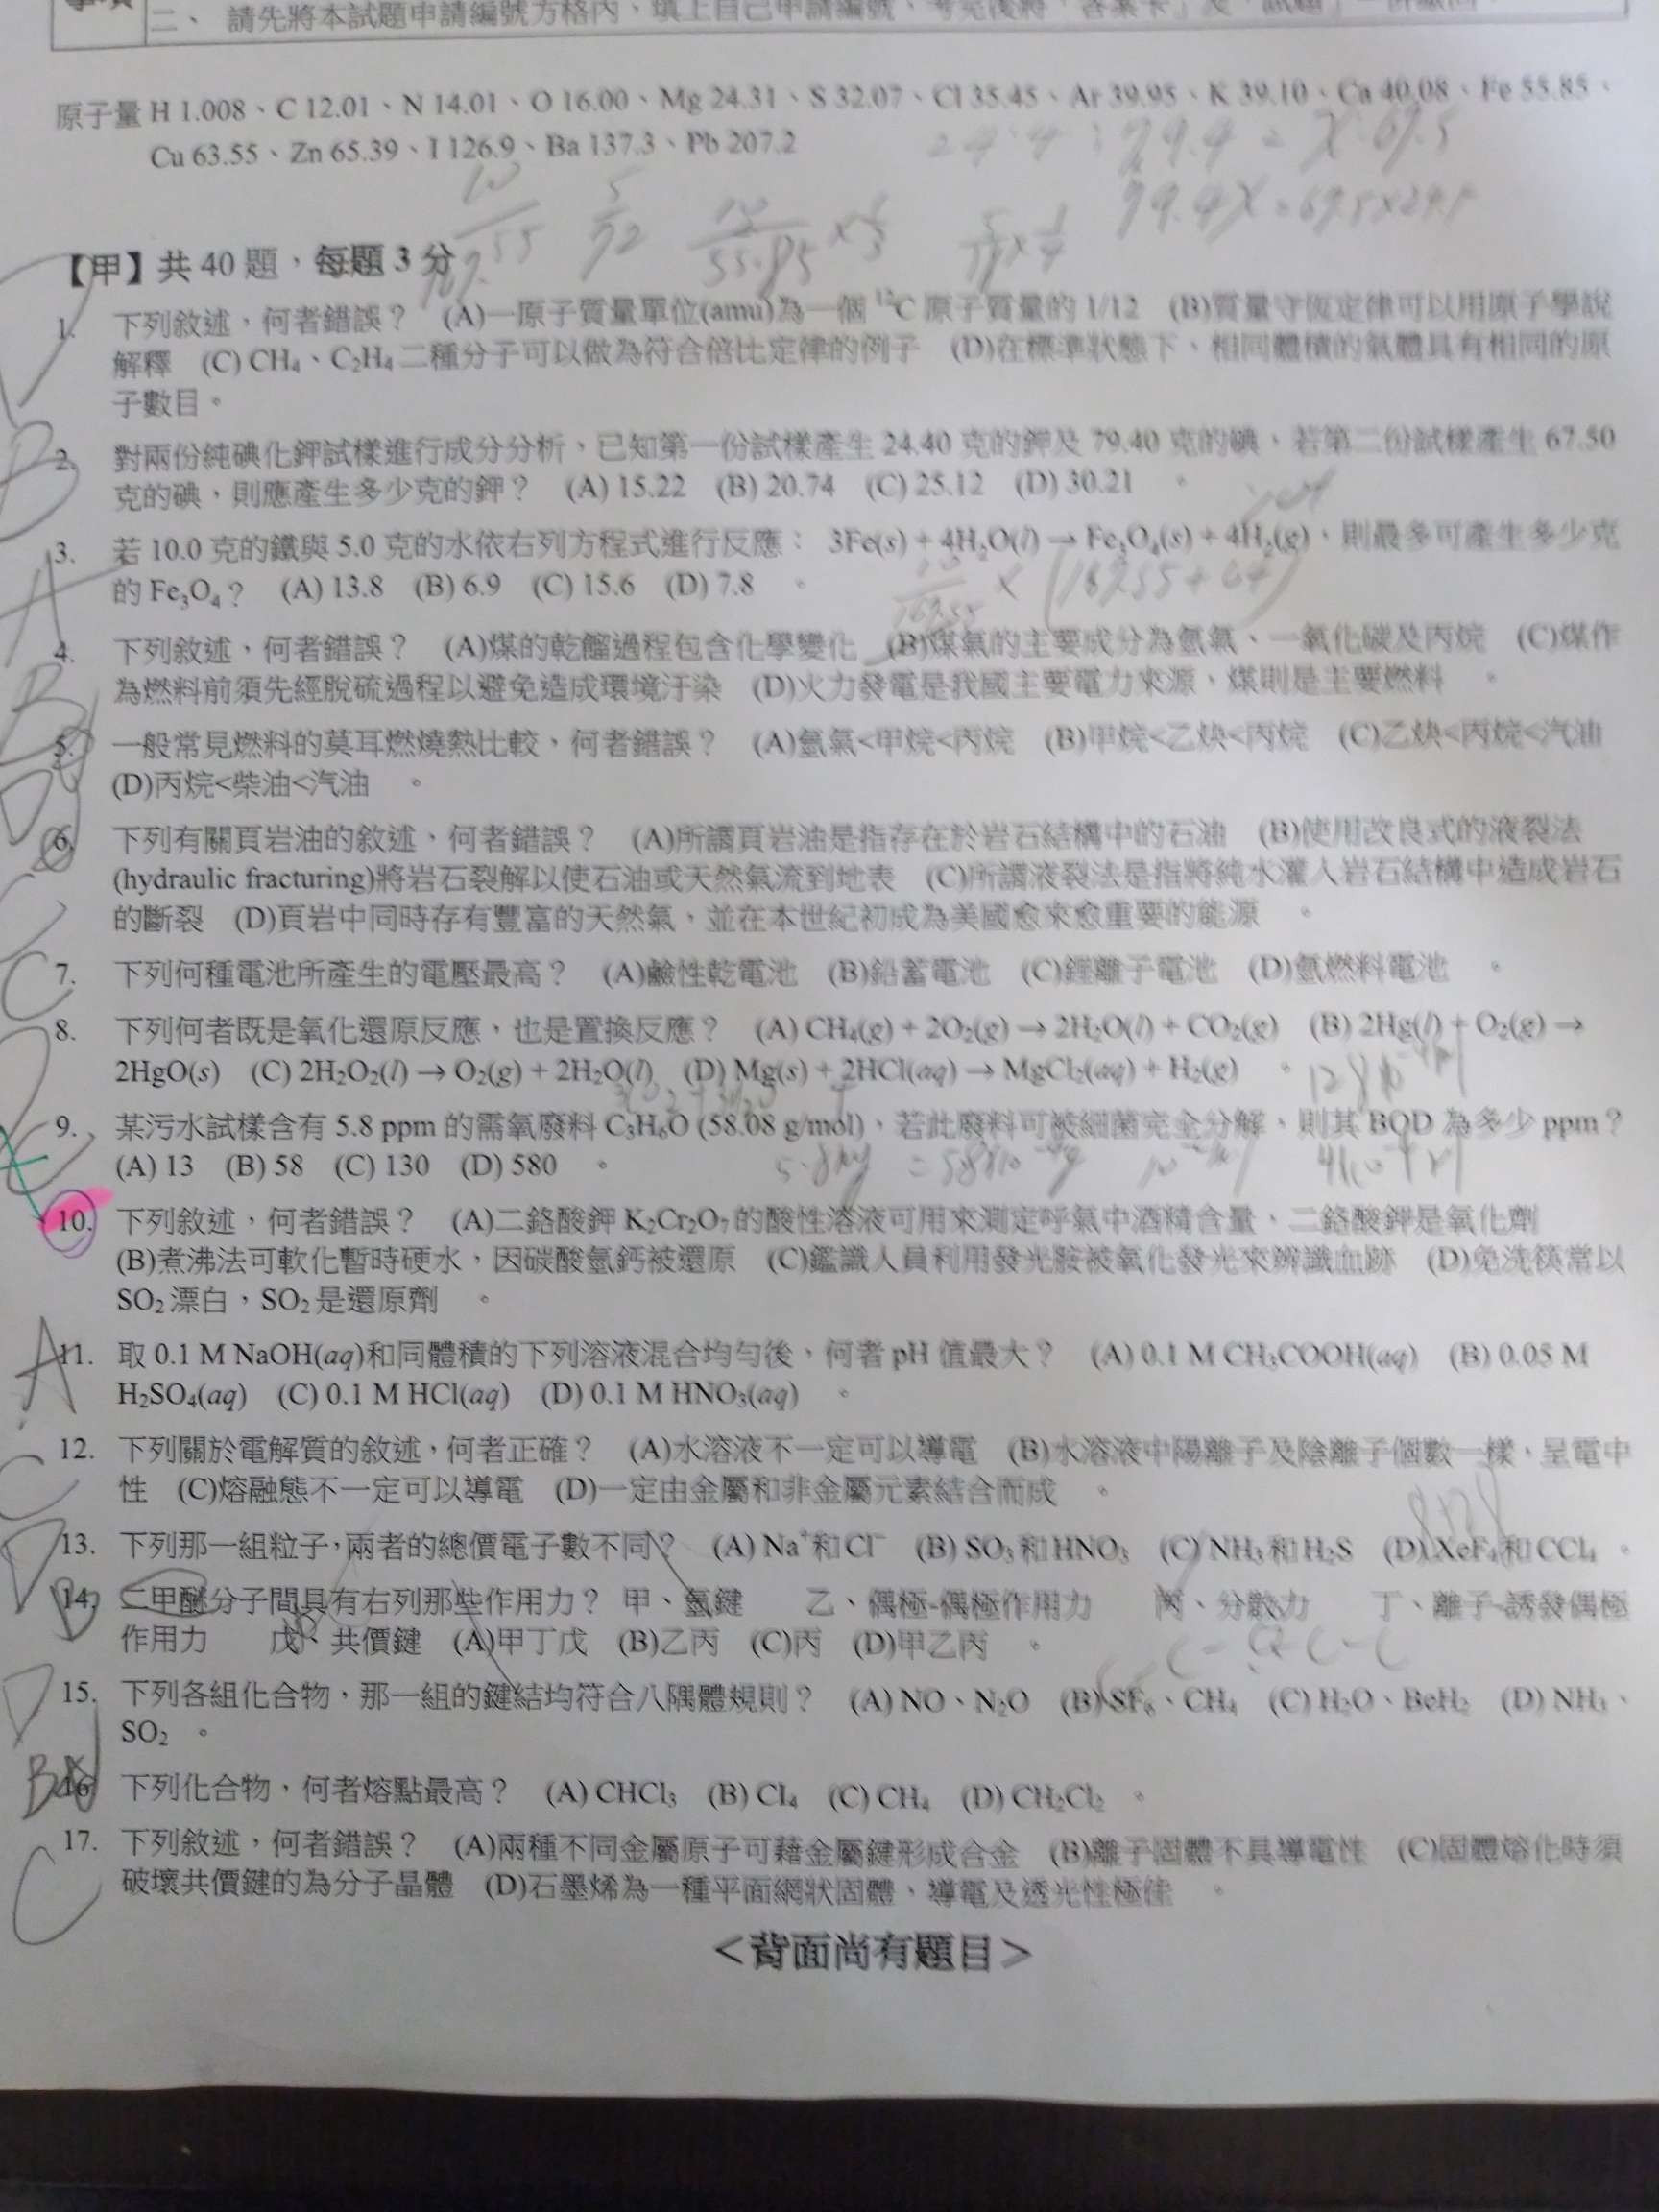 二、 請先將本試題申請編號方格內,填上自己申請編號,考完後將「答案卡」及「試題」一併繳回。
原子量 H 1.008、C 12.01、N 14.01、O 16.00、Mg 24.31、S 32.07、Cl 35.45、Ar 39.95、K 39.10、Ca 40.08、Fe 55.85、
Cu 63.55、Zn 65.39、I 126.9、Ba 137.3、Pb 207.2
【甲】共 40 題,每題 3 分
1. 下列敘述,何者錯誤? (A)一原子質量單位(amu)為一個 ¹²C 原子質量的 1/12 (B)質量守恆定律可以用原子學說
解釋 (C) CH₄、C₂H₄ 二種分子可以做為符合倍比定律的例子 (D)在標準狀態下,相同體積的氣體具有相同的原
子數目。
B
2. 對兩份純碘化鉀試樣進行成分分析,已知第一份試樣產生 24.40 克的鉀及 79.40 克的碘,若第二份試樣產生 67.50
克的碘,則應產生多少克的鉀? (A) 15.22 (B) 20.74 (C) 25.12 (D) 30.21 。
A
3. 若 10.0 克的鐵與 5.0 克的水依右列方程式進行反應: 3Fe(s) + 4H₂O(l) → Fe₃O₄(s) + 4H₂(g),則最多可產生多少克
的 Fe₃O₄? (A) 13.8 (B) 6.9 (C) 15.6 (D) 7.8 。
B
4. 下列敘述,何者錯誤? (A)煤的乾餾過程包含化學變化 (B)煤氣的主要成分為氫氣、一氧化碳及丙烷 (C)煤作
為燃料前須先經脫硫過程以避免造成環境汙染 (D)火力發電是我國主要電力來源,煤則是主要燃料 。
5. 一般常見燃料的莫耳燃燒熱比較,何者錯誤? (A)氫氣<甲烷<丙烷 (B)甲烷<乙炔<丙烷 (C)乙炔<丙烷<汽油
(D)丙烷<柴油<汽油 。
6. 下列有關頁岩油的敘述,何者錯誤? (A)所謂頁岩油是指存在於岩石結構中的石油 (B)使用改良式的液裂法
(hydraulic fracturing)將岩石裂解以使石油或天然氣流到地表 (C)所謂液裂法是指將純水灌入岩石結構中造成岩石
的斷裂 (D)頁岩中同時存有豐富的天然氣,並在本世紀初成為美國愈來愈重要的能源 。
C
7. 下列何種電池所產生的電壓最高? (A)鹼性乾電池 (B)鉛蓄電池 (C)鋰離子電池 (D)氫燃料電池 。
8. 下列何者既是氧化還原反應,也是置換反應? (A) CH₄(g) + 2O₂(g) → 2H₂O(l) + CO₂(g) (B) 2Hg(l) + O₂(g) →
2HgO(s) (C) 2H₂O₂(l) → O₂(g) + 2H₂O(l) (D) Mg(s) + 2HCl(aq) → MgCl₂(aq) + H₂(g) 。
9. 某污水試樣含有 5.8 ppm 的需氧廢料 C₃H₆O (58.08 g/mol),若此廢料可被細菌完全分解,則其 BOD 為多少 ppm?
(A) 13 (B) 58 (C) 130 (D) 580 。
10. 下列敘述,何者錯誤? (A)二鉻酸鉀 K₂Cr₂O₇ 的酸性溶液可用來測定呼氣中酒精含量,二鉻酸鉀是氧化劑
(B)煮沸法可軟化暫時硬水,因碳酸氫鈣被還原 (C)鑑識人員利用發光胺被氧化發光來辨識血跡 (D)免洗筷常以
SO₂ 漂白,SO₂ 是還原劑 。
A
11. 取 0.1 M NaOH(aq)和同體積的下列溶液混合均勻後,何者 pH 值最大? (A) 0.1 M CH₃COOH(aq) (B) 0.05 M
H₂SO₄(aq) (C) 0.1 M HCl(aq) (D) 0.1 M HNO₃(aq) 。
C
12. 下列關於電解質的敘述,何者正確? (A)水溶液不一定可以導電 (B)水溶液中陽離子及陰離子個數一樣,呈電中
性 (C)熔融態不一定可以導電 (D)一定由金屬和非金屬元素結合而成 。
D
13. 下列那一組粒子,兩者的總價電子數不同? (A) Na⁺和 Cl⁻ (B) SO₃ 和 HNO₃ (C) NH₃ 和 H₂S (D) XeF₄ 和 CCl₄ 。
14. 二甲醚分子間具有右列那些作用力? 甲、氫鍵 乙、偶極-偶極作用力 丙、分散力 丁、離子-誘發偶極
作用力 戊、共價鍵 (A)甲丁戊 (B)乙丙 (C)丙 (D)甲乙丙 。
D
15. 下列各組化合物,那一組的鍵結均符合八隅體規則? (A) NO、N₂O (B) SF₆、CH₄ (C) H₂O、BeH₂ (D) NH₃、
SO₂ 。
B
16. 下列化合物,何者熔點最高? (A) CHCl₃ (B) CI₄ (C) CH₄ (D) CH₂Cl₂ 。
C
17. 下列敘述,何者錯誤? (A)兩種不同金屬原子可藉金屬鍵形成合金 (B)離子固體不具導電性 (C)固體熔化時須
破壞共價鍵的為分子晶體 (D)石墨烯為一種平面網狀固體,導電及透光性極佳 。
<背面尚有題目>